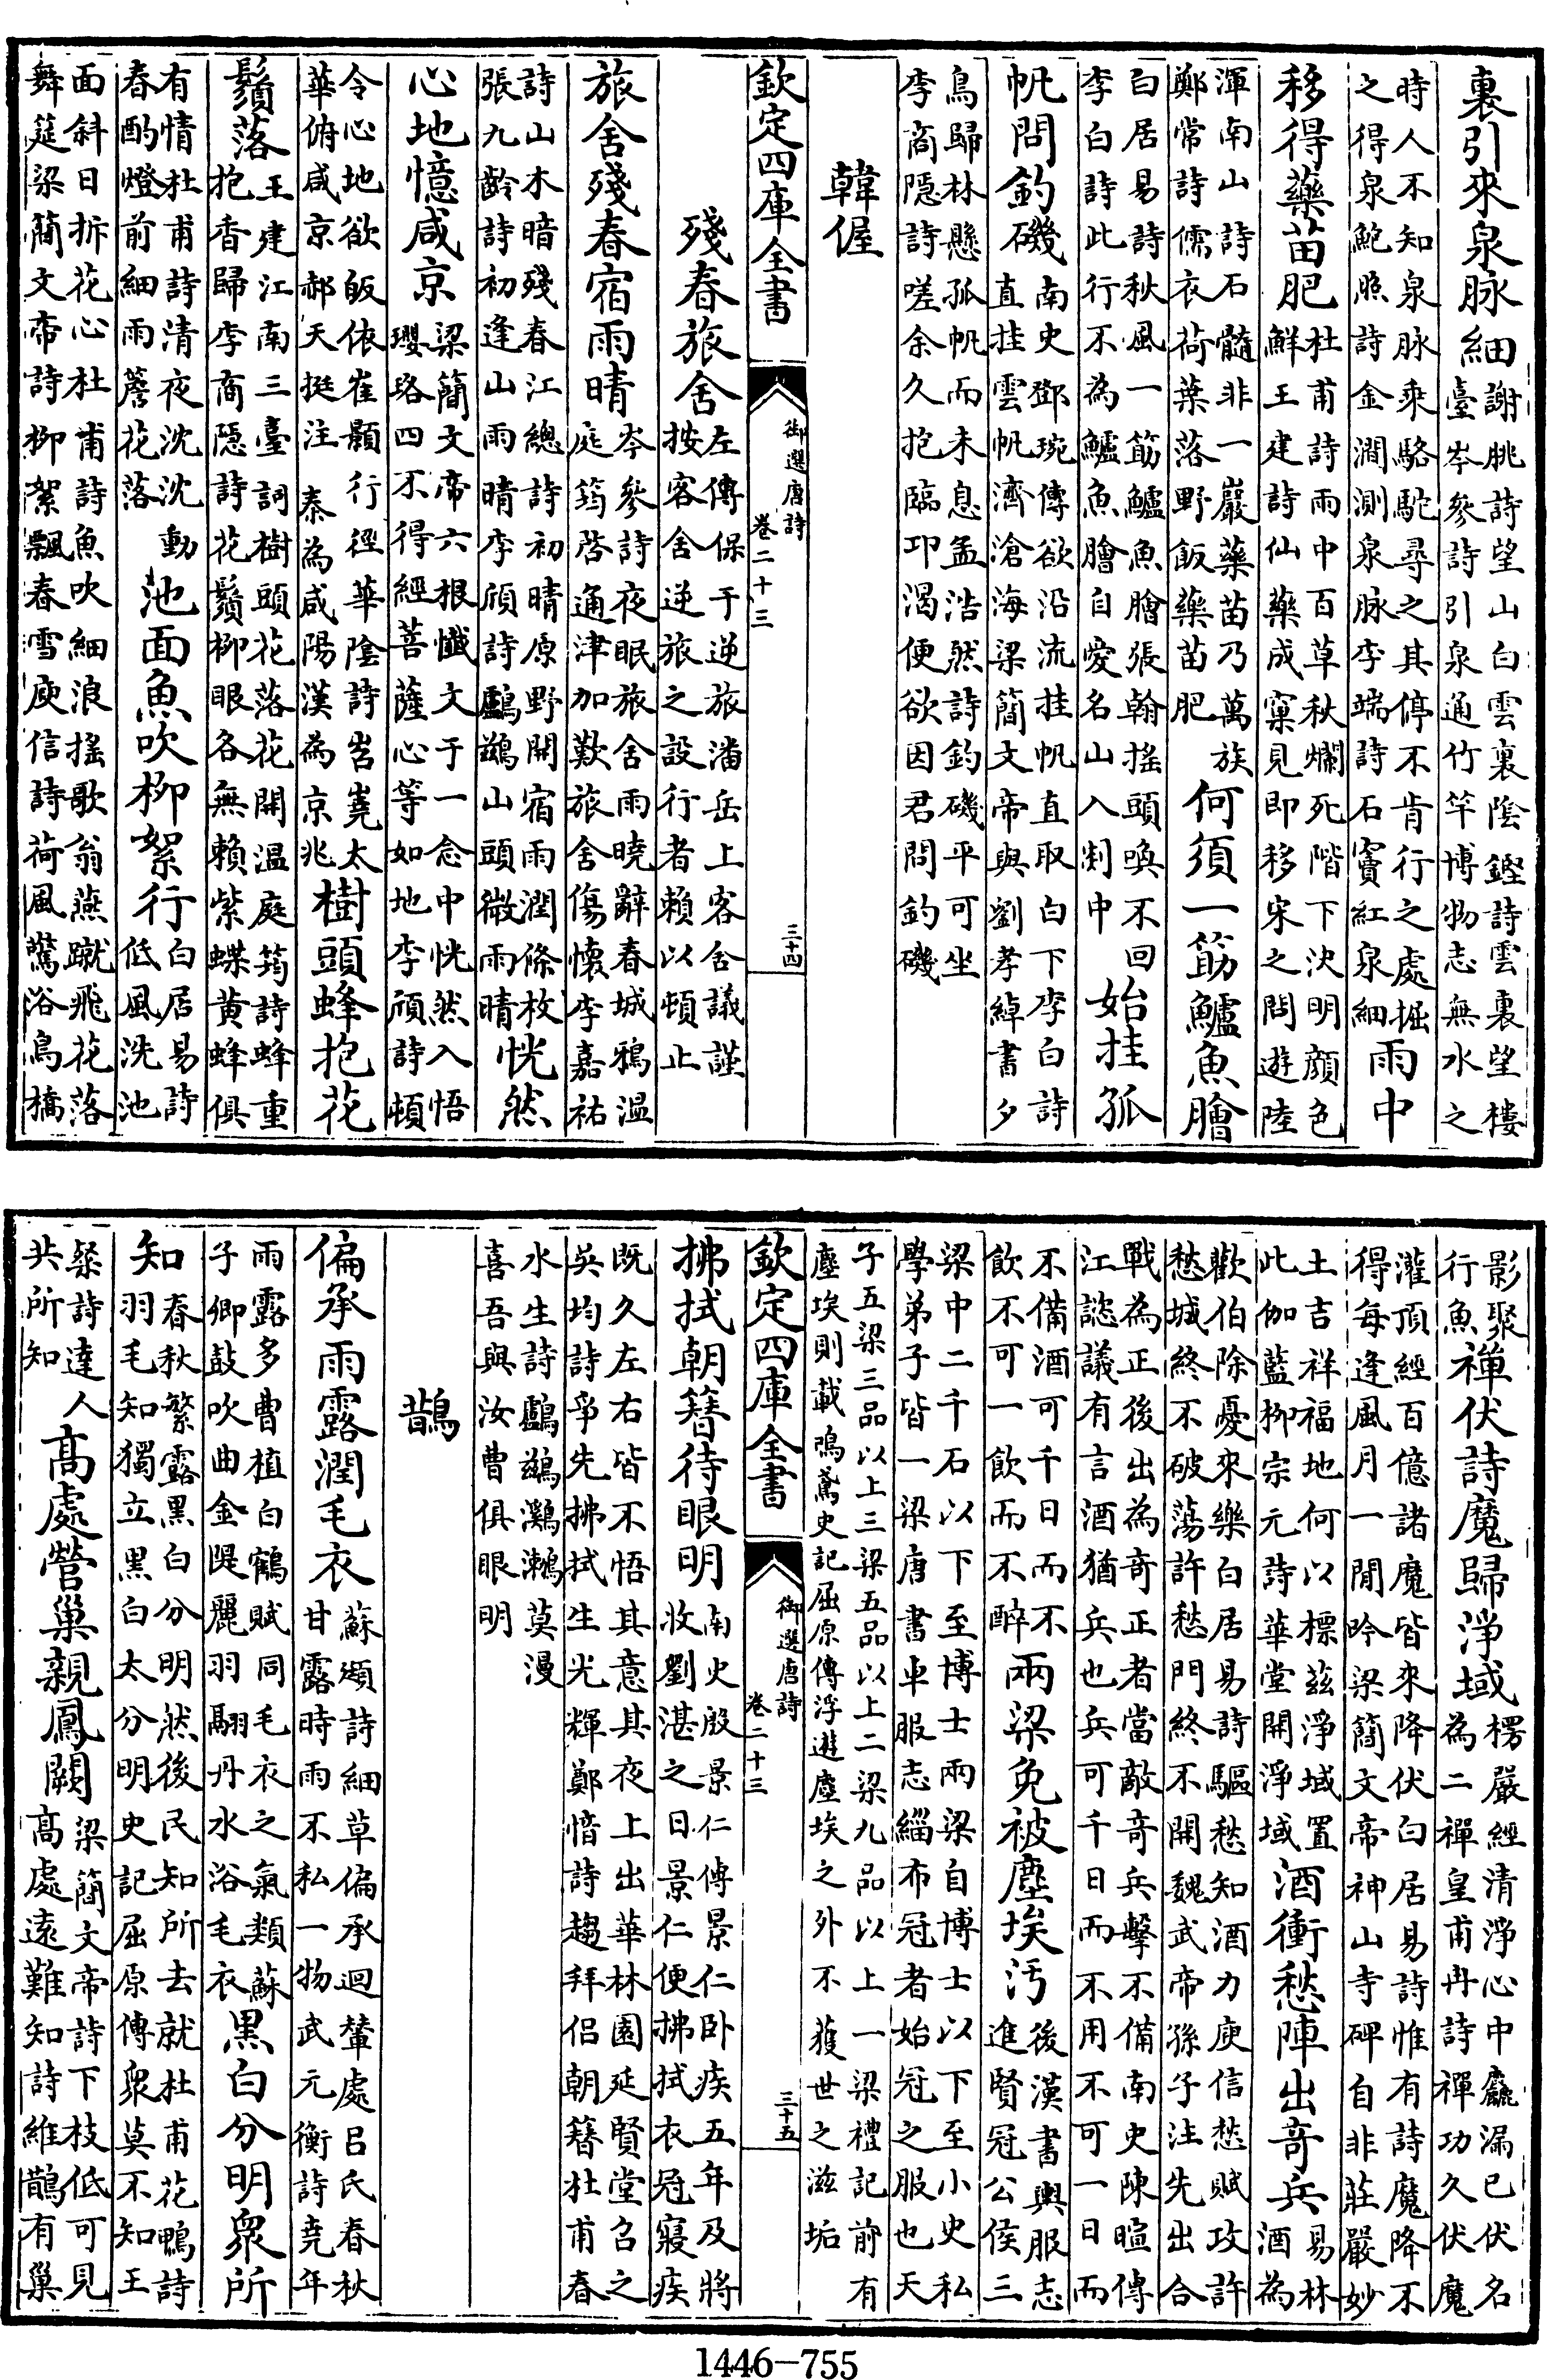 裏引來泉脉細謝朓詩望山白雲裏陰鏗詩雲裏望樓
臺岑參詩引泉通竹竿博物志無水之
時人不知泉脉乘駱駝尋之其停不肯行之處掘
之得泉鮑照詩金澗測泉脉李端詩石竇紅泉細雨中
移得藥苗肥杜甫詩雨中百草秋爛死階下決明顔色
鮮王建詩仙藥成窠見即移宋之問遊陸
渾南山詩石髓非一巖藥苗乃萬族
鄭常詩儒衣荷葉落野飯藥苗肥何須一筯鱸魚膾
白居易詩秋風一筯鱸魚膾張翰搖頭喚不回
李白詩此行不為鱸魚膾自愛名山入剡中始挂孤
帆問釣磯南史鄧琬傳欲沿流挂帆直取白下李白詩
直挂雲帆濟滄海梁簡文帝與劉孝綽書夕
鳥歸林懸孤帆而未息孟浩然詩釣磯平可坐
李商隱詩嗟余久抱臨邛渴便欲因君問釣磯
韓偓
欽定四庫全書
御選唐詩
卷二十三
三十四
殘春旅舍左傳保于逆旅潘岳上客舍議謹
按客舍逆旅之設行者賴以頓止
旅舍殘春宿雨晴岑參詩夜眠旅舍雨曉辭春城鴉溫
庭筠啓通津加歎旅舍傷懷李嘉祐
詩山木暗殘春江總詩初晴原野開宿雨潤條枚
張九齡詩初逢山雨晴李頎詩鸕鷀山頭微雨晴恍然
心地憶咸京梁簡文帝六根懺文于一念中恍然入悟
瓔珞四不得經菩薩心等如地李頎詩頓
令心地欲皈依崔顥行徑華陰詩岧嶤太
華俯咸京郝天挺注秦為咸陽漢為京兆樹頭蜂抱花
鬚落王建江南三臺詞樹頭花落花開溫庭筠詩蜂重
抱香歸李商隱詩花鬚柳眼各無賴紫蝶黄蜂俱
有情杜甫詩清夜沈沈動
春酌燈前細雨簷花落池面魚吹柳絮行白居易詩
低風洗池
面斜日拆花心杜甫詩魚吹細浪搖歌翁燕蹴飛花落
舞筵梁簡文帝詩柳絮飄春雪庾信詩荷風驚浴鳥橋
影聚
行魚禪伏詩魔歸淨域楞嚴經清淨心中麤漏已伏名
為二禪皇甫冉詩禪功久伏魔
灌頂經百億諸魔皆來降伏白居易詩惟有詩魔降不
得每逢風月一閒吟梁簡文帝神山寺碑自非莊嚴妙
土吉祥福地何以標茲淨域置
此伽藍柳宗元詩華堂開淨域酒衝愁陣出奇兵易林
酒為
歡伯除憂來樂白居易詩驅愁知酒力庾信愁賦攻許
愁城終不破蕩許愁門終不開魏武帝孫子注先出合
戰為正後出為奇正者當敵奇兵擊不備南史陳暄傳
江諮議有言酒猶兵也兵可千日而不用不可一日而
不備酒可千日而不
飲不可一飲而不醉兩梁免被塵埃汚後漢書輿服志
進賢冠公侯三
梁中二千石以下至博士兩梁自博士以下至小史私
學弟子皆一梁唐書車服志緇布冠者始冠之服也天
子五梁三品以上三梁五品以上二梁九品以上一梁禮記前有
塵埃則載鳴鳶史記屈原傳浮遊塵埃之外不獲世之滋垢
欽定四庫全書
御選唐詩
卷二十三
三十五
拂拭朝簪待眼明南史殷景仁傳景仁卧疾五年及將
收劉湛之日景仁便拂拭衣冠寢疾
既久左右皆不悟其意其夜上出華林園延賢堂召之
吳均詩爭先拂拭生光輝鄭愔詩趨拜侶朝簪杜甫春
水生詩鸕鷀鸂鷘莫漫
喜吾與汝曹俱眼明
鵲
偏承雨露潤毛衣蘇頲詩細草偏承迴輦處吕氏春秋
甘露時雨不私一物武元衡詩堯年
雨露多曹植白鶴賦同毛衣之氣類蘇
子卿鼓吹曲金隄麗羽翮丹水浴毛衣黑白分明衆所
知春秋繁露黑白分明然後民知所去就杜甫花鴨詩
羽毛知獨立黑白太分明史記屈原傳衆莫不知王
粲詩達人
共所知高處營巢親鳳闕梁簡文帝詩下枝低可見
高處遠難知詩維鵲有巢
1446-755